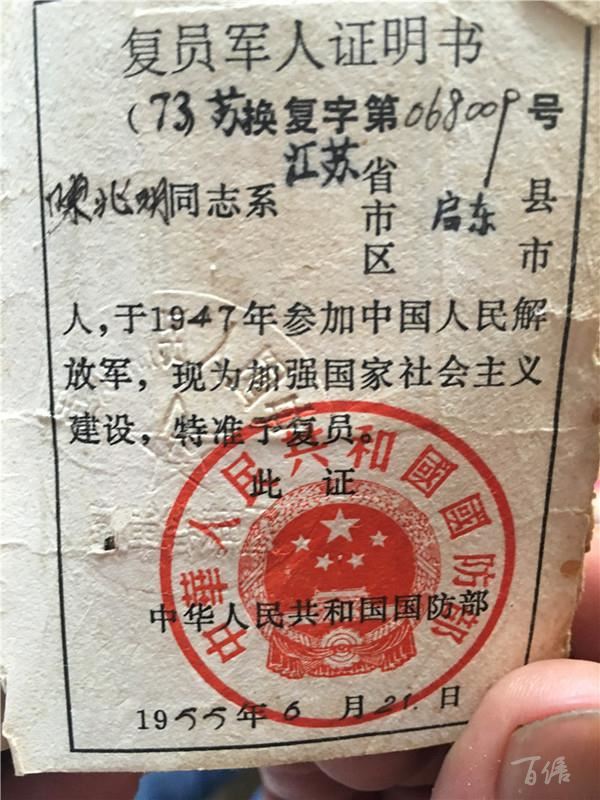 复员军人证明书
(73)苏换复字第068009号
陳兆明同志系江苏省市区启东县市
人，于1947年参加中国人民解
放军，现为加强国家社会主义
建设，特准予复员。
此证
中華人民共和國國防部
中华人民共和国国防部
1955年6月21日
百俵